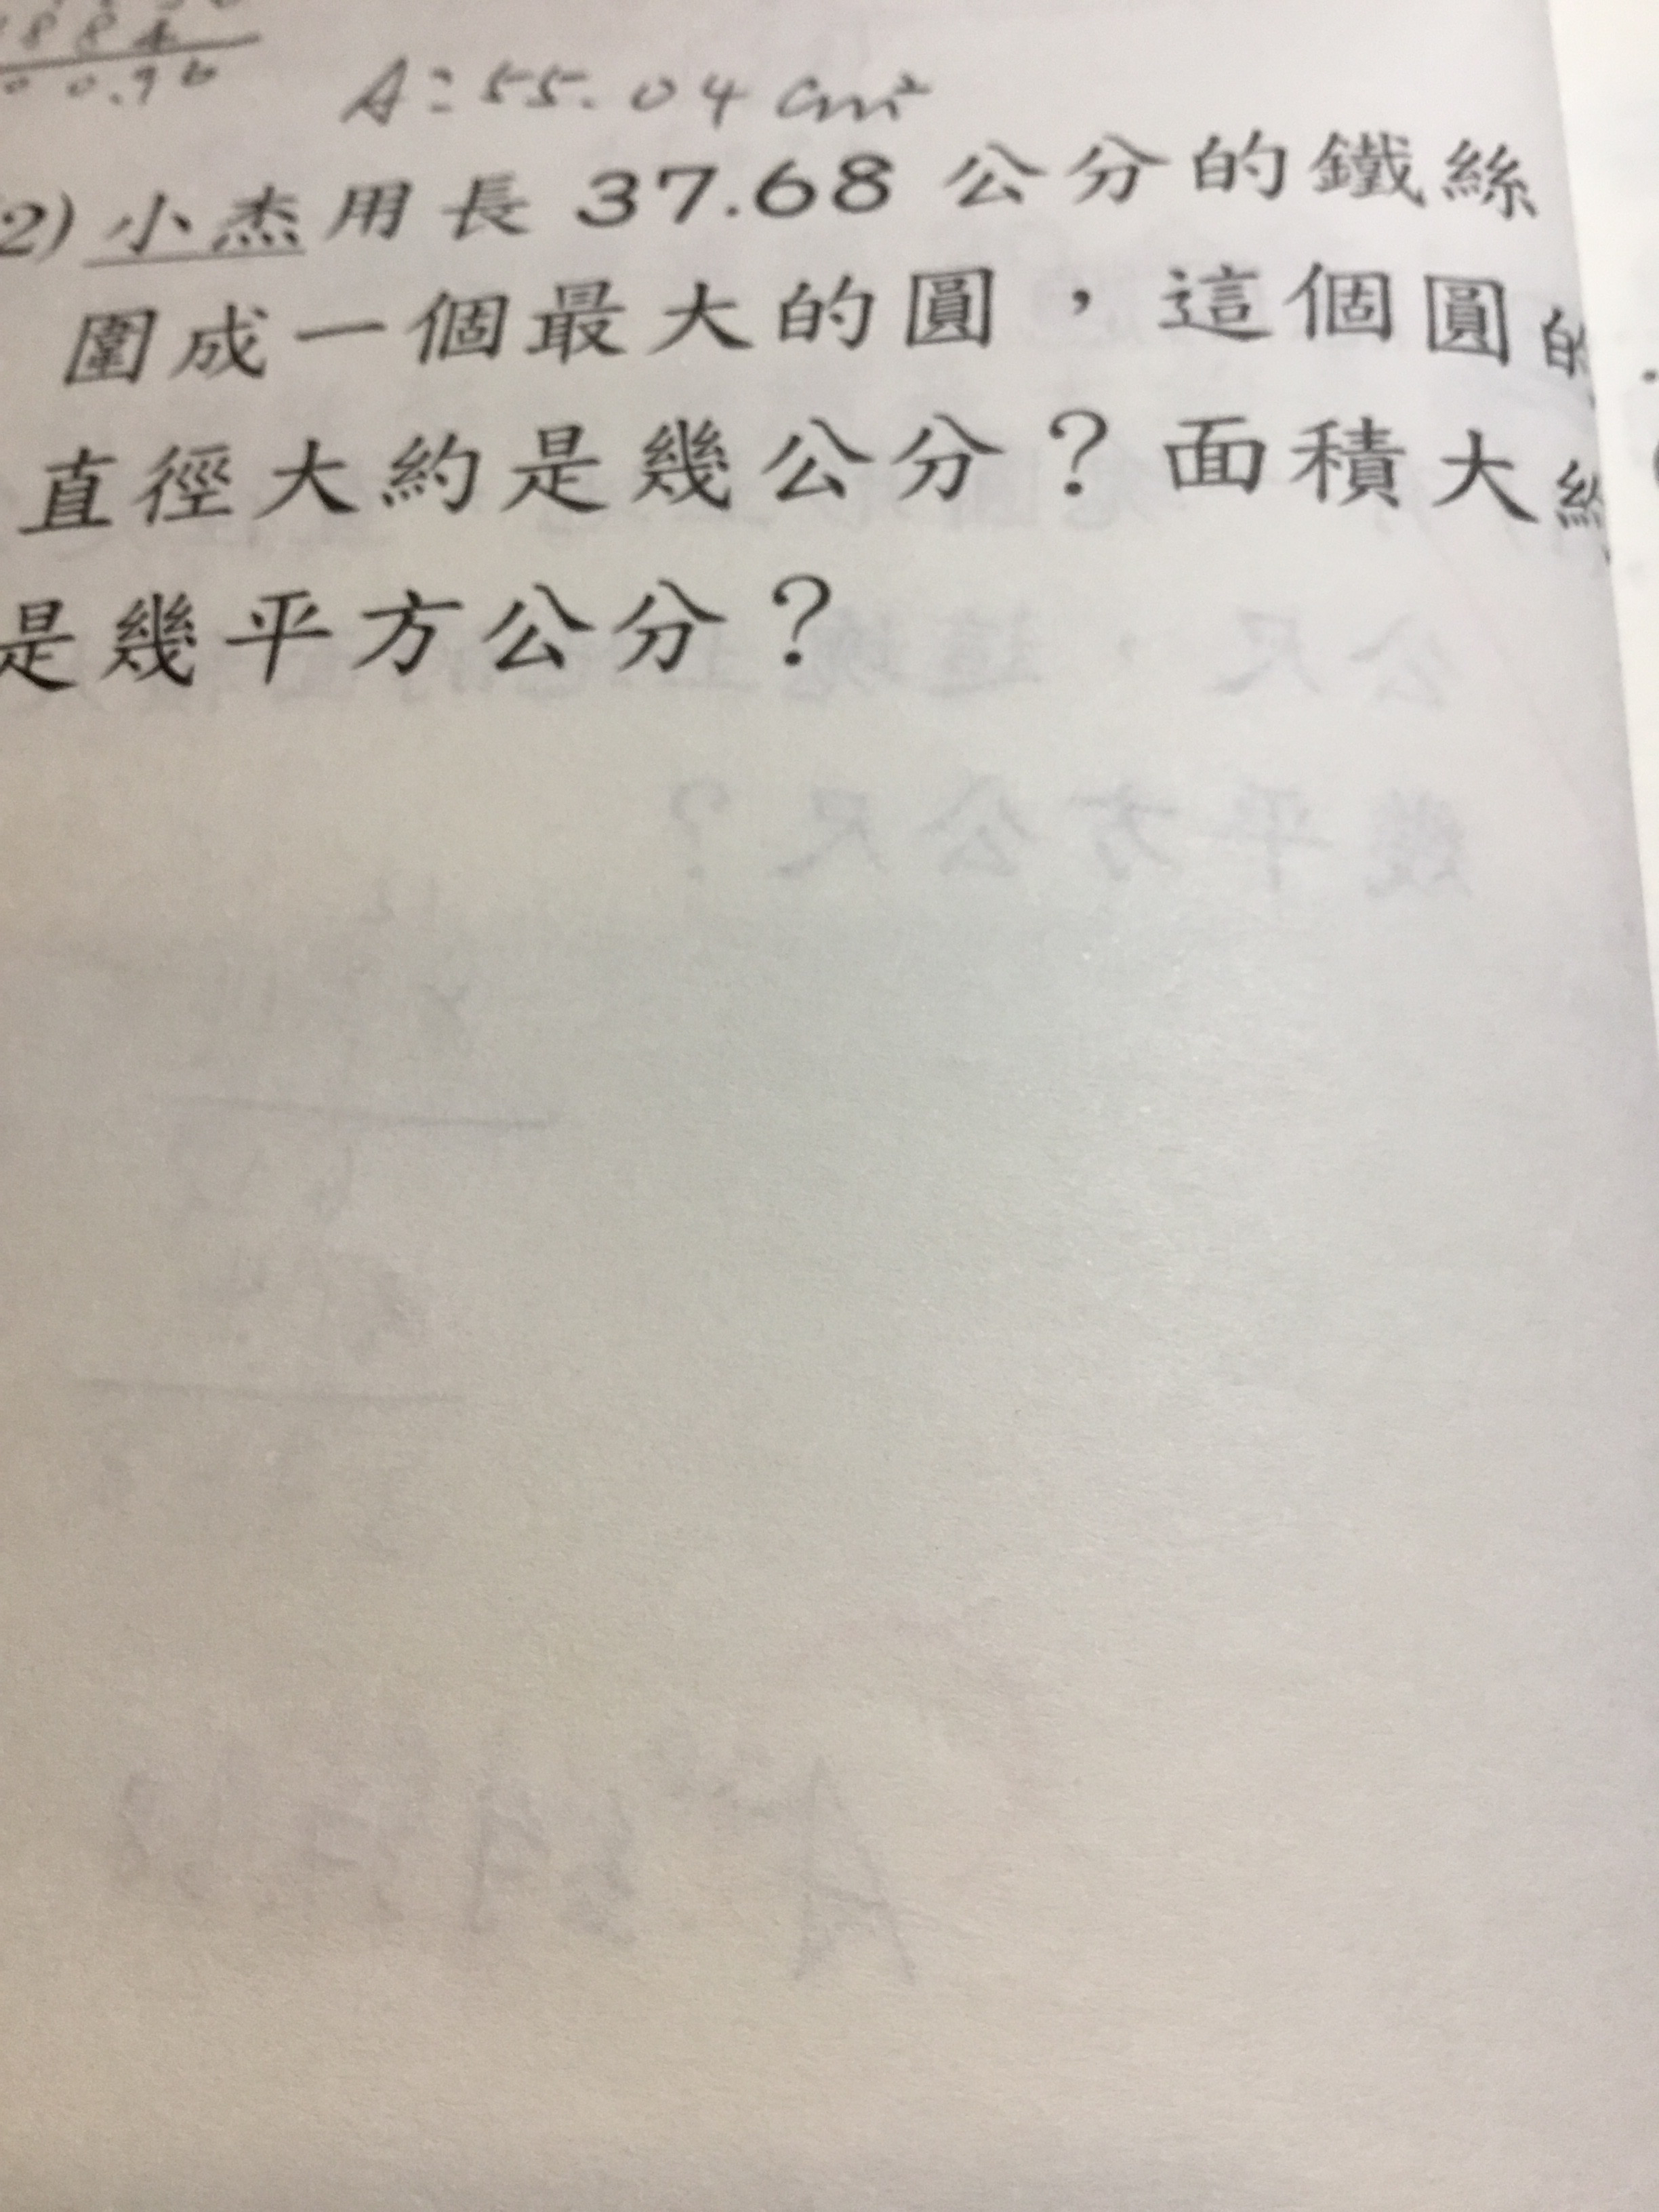 884
0 0.96
A:55.04 cm²
2) 小杰用長 37.68 公分的鐵絲
圍成一個最大的圓，這個圓的
直徑大約是幾公分？面積大約
是幾平方公分？
公尺，這塊
幾平方公尺？